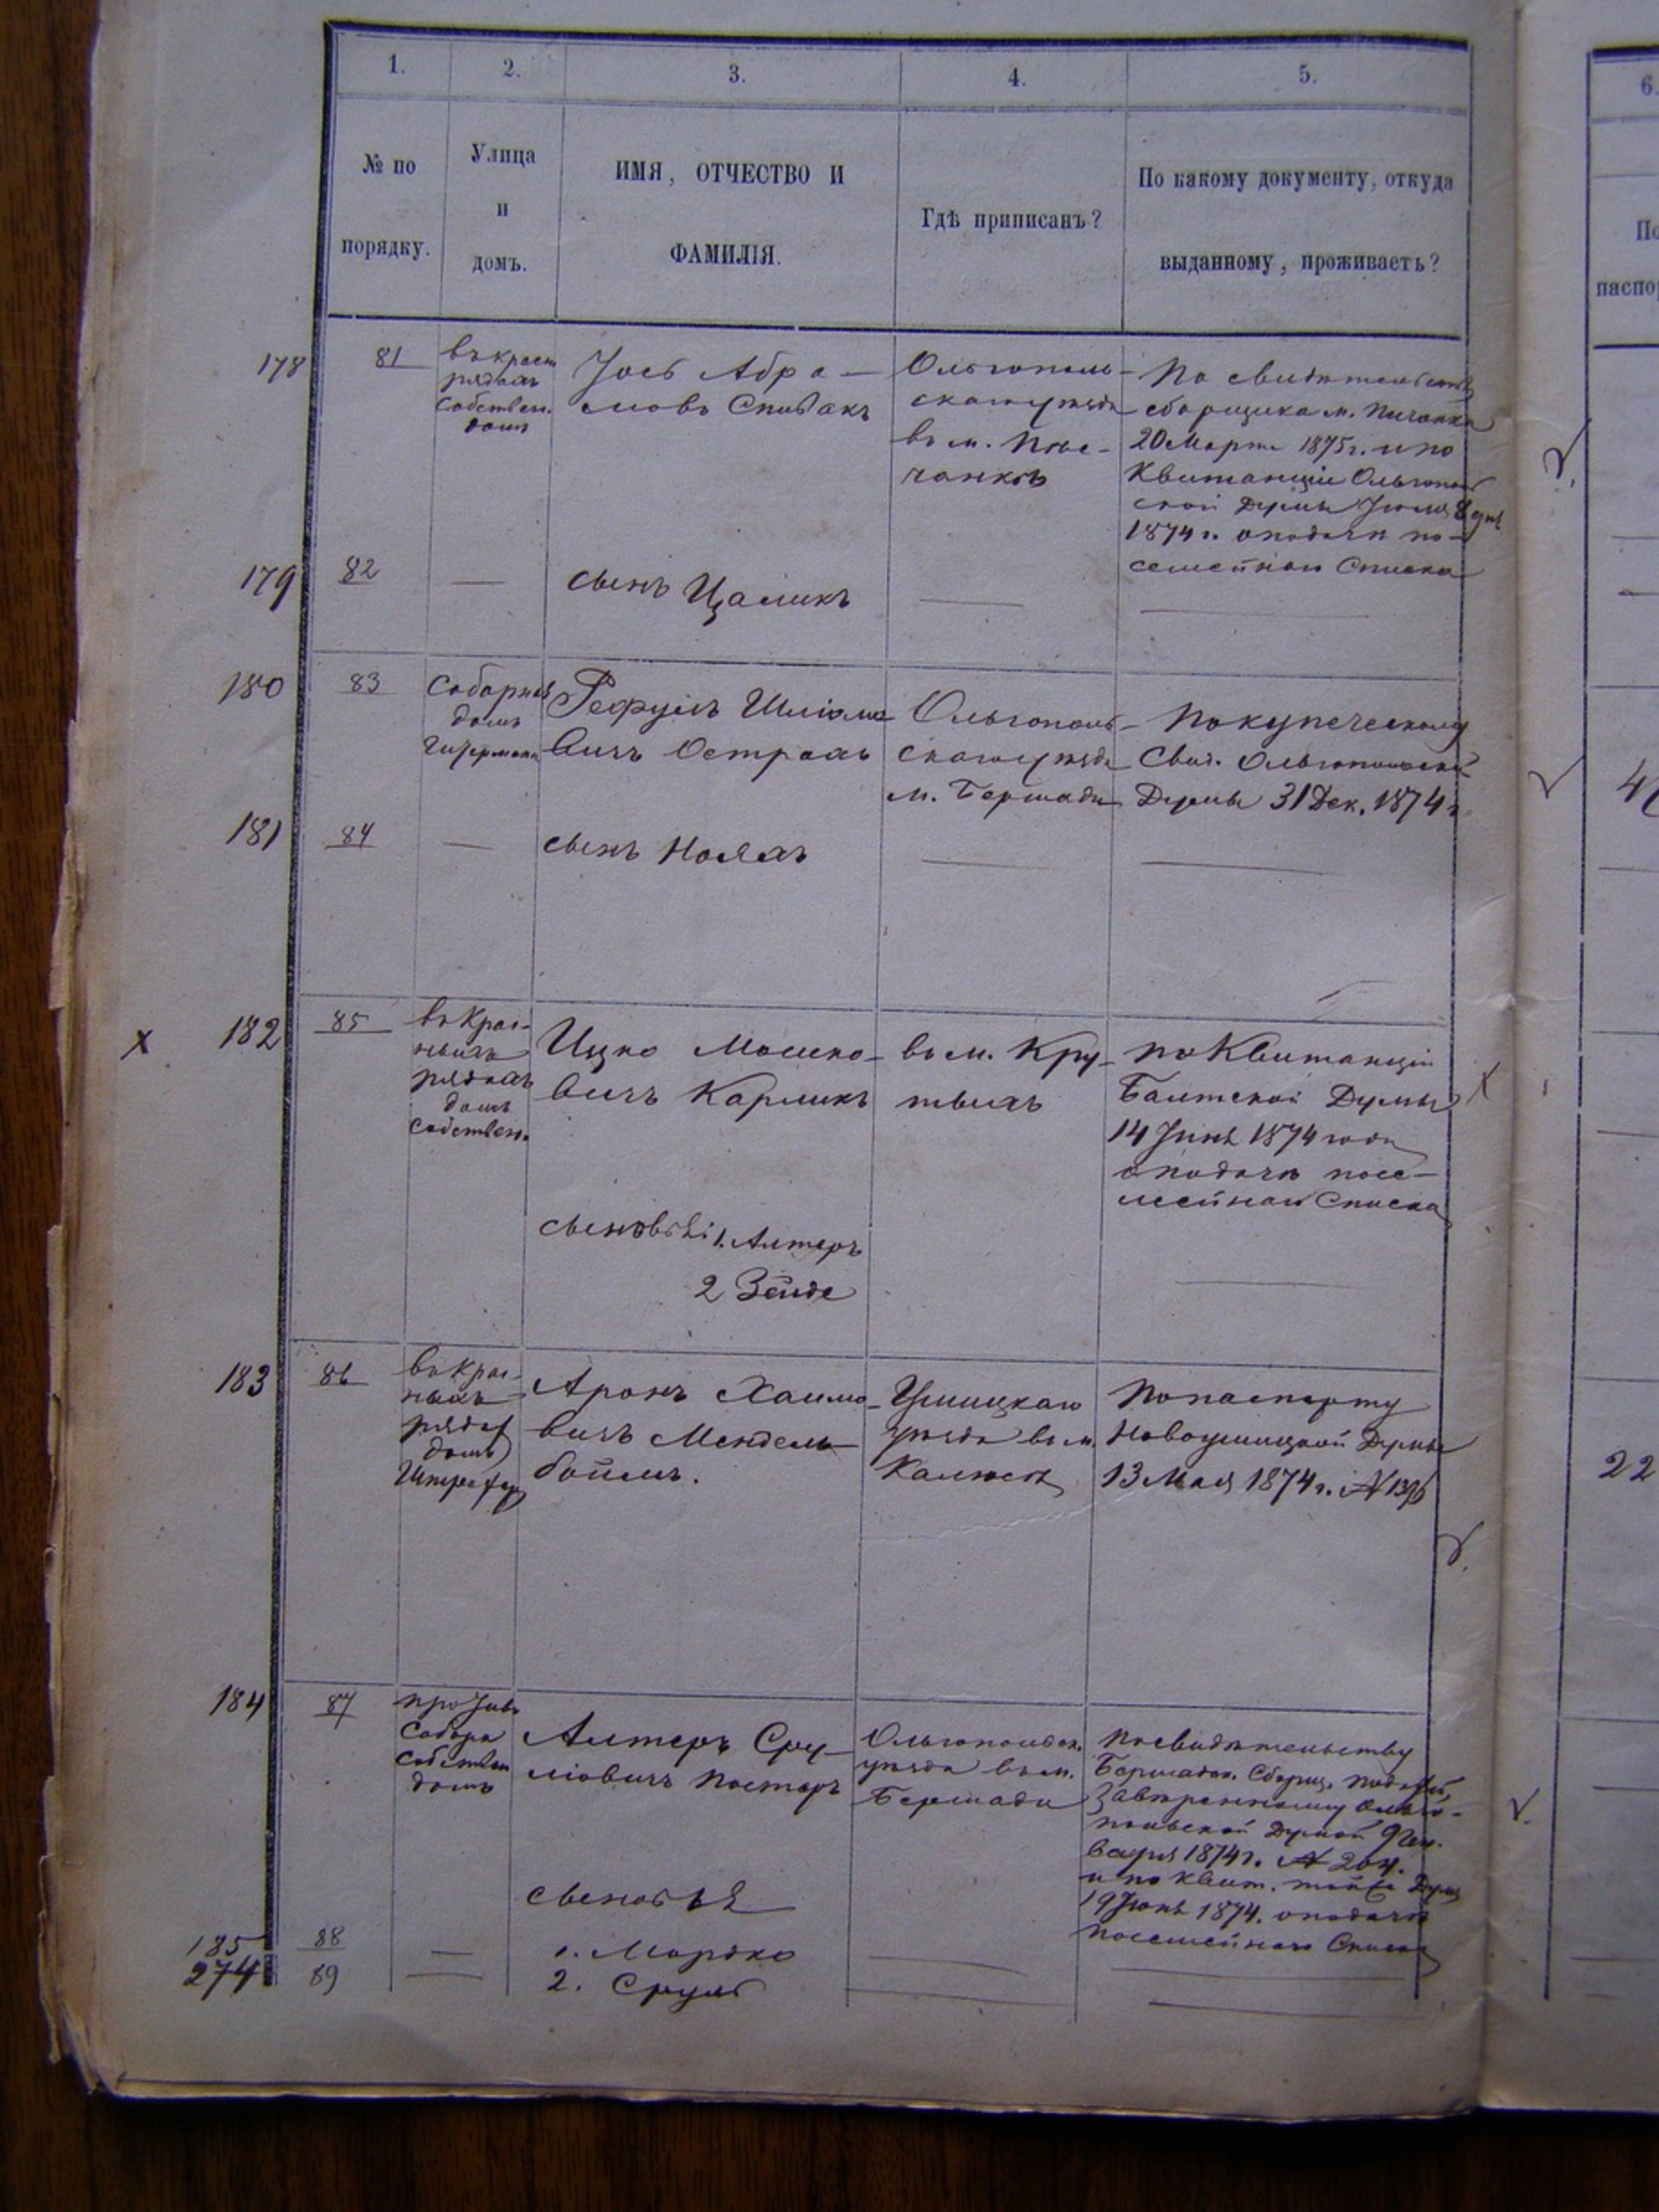 1.
2.
3.
4.
5.
6.
№ по
порядку.
Улица
и
домъ.
ИМЯ, ОТЧЕСТВО И
ФАМИЛІЯ.
Гдѣ приписанъ?
По какому документу, откуда
выданному, проживаетъ?
По
паспор
178
81
въ красн
рядахъ
собствен.
домъ
Іось Абра—
мовъ Спивакъ
Ольгополь—
скаго уѣзда
въ м. Пѣс—
чанкѣ
По свидѣтельству
сборщика м. Пичанки
20 Марта 1875 г. и по
Квитанціи Ольгополь
ской Думы Іюля 8 дня
1874 г. о подачѣ по—
семейнаго Списка
179
82
сынъ Цаликъ
180
83
Соборная
домъ
Рефуилъ Шліомо
вичъ Острахъ
Ольгополь—
скаго уѣзда
м. Бершади
По купеческому
Свид. Ольгопольской
Думы 31 Дек. 1874 г.
181
84
сынъ Нояхъ
х
182
85
въ Крас—
ныхъ
рядахъ
домъ
собствен.
Ицко Мошко—
вичъ Карликъ
въ м. Кру—
тыхъ
по Квитанціи
Балтской Думы
14 Іюня 1874 года
о подачѣ посе—
мейнаго Списка
сыновья: 1. Алтеръ
2 Зейде
183
86
въ Крас—
ныхъ
ряда
домъ
Аронъ Хаимо—
вичъ Мендель—
боймъ.
Ушицкаго
уѣзда въ м.
Калюсѣ
По паспорту
Новоушицкой Думы
13 Мая 1874 г. №
22
184
87
противъ
Собора
Собствен
домъ
Алтеръ Сру—
ліовичъ Постеръ
Ольгопольск.
уѣзда въ м.
Бершади
По свидѣтельству
Бершадск. Сборщ. податей,
Завѣренному Ольго—
польской Думой 9 Ян.
варя 1874 г. № 204.
и по Квит. той же Думы
19 Іюня 1874. о подачѣ
посемейнаго Списка
сыновья
185
88
1. Мордко
274
89
2. Сруль